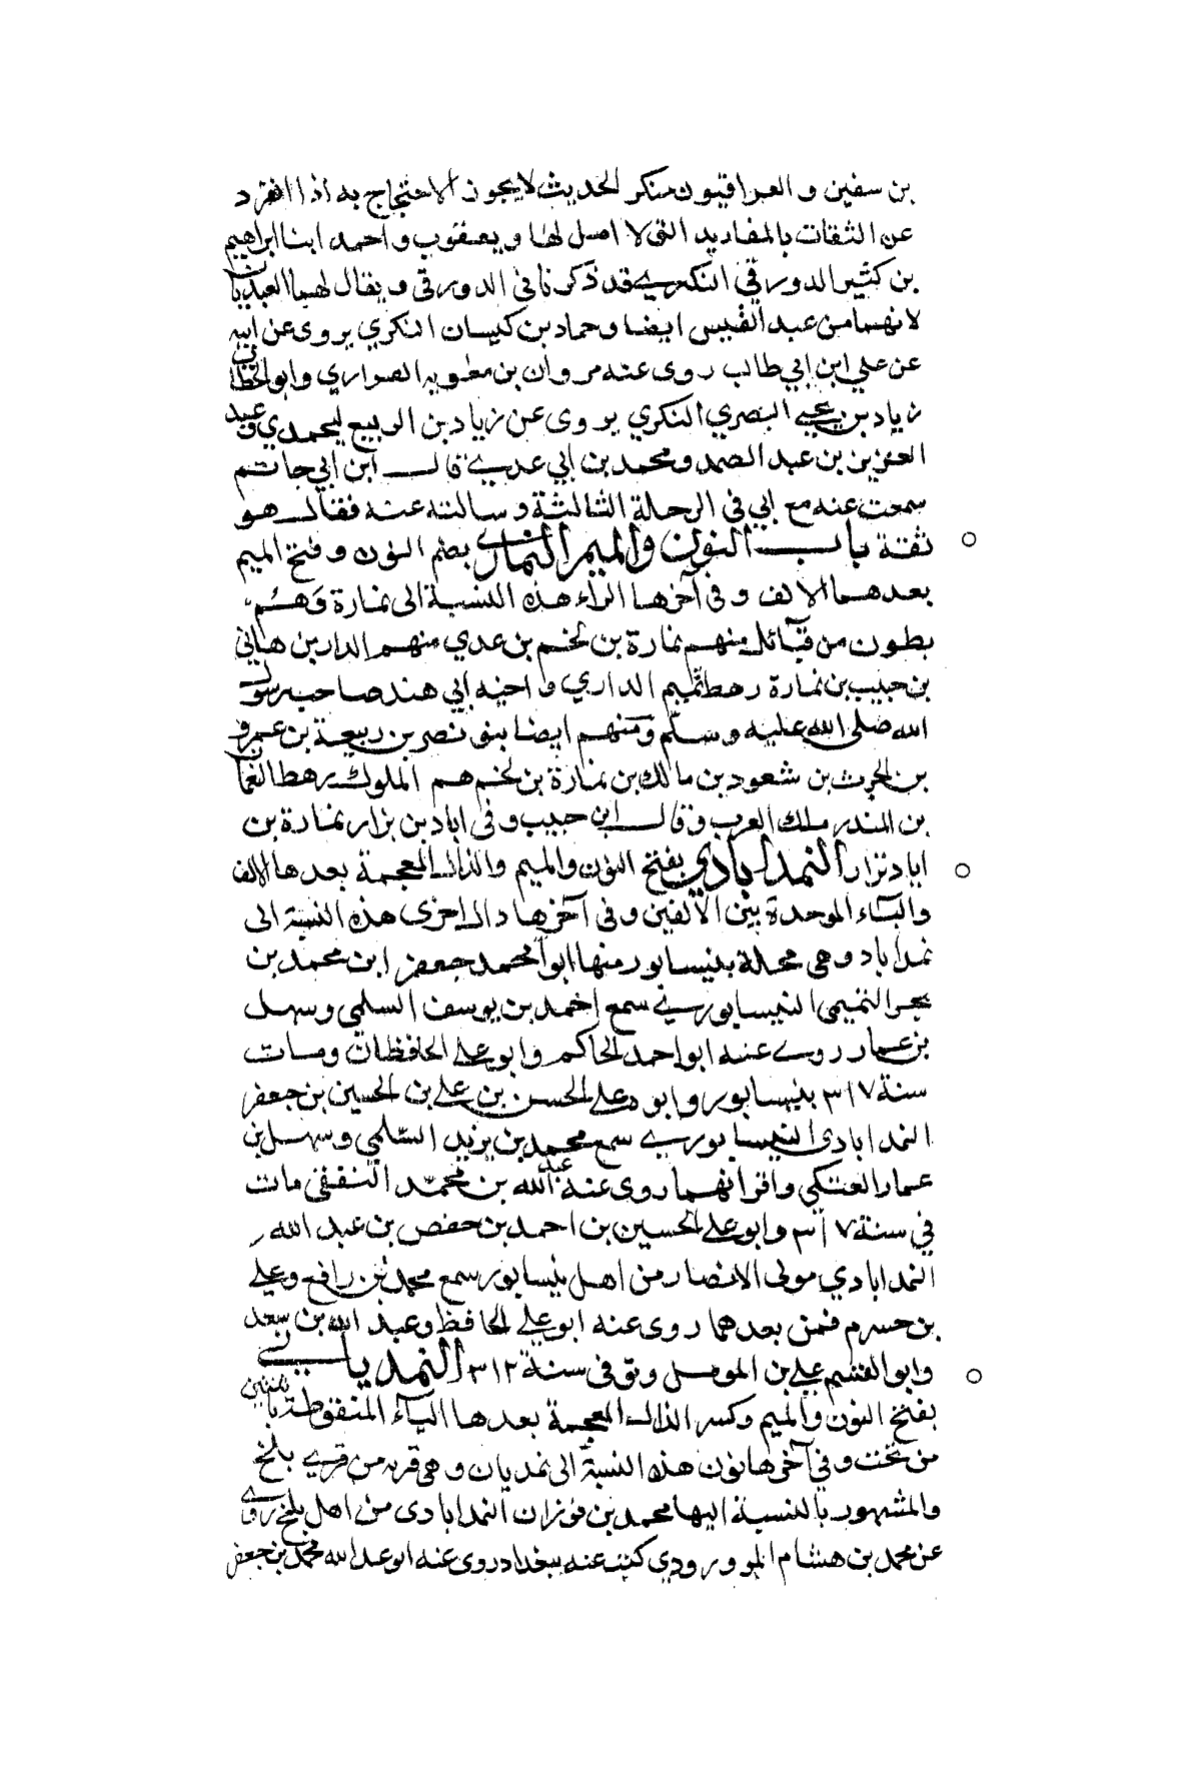 بن سفين و العراقيون منكر الحديث لا يجوز الاحتجاج به اذا انفرد
عن الثقات بالمفاريد التى لا اصل لها و يعقوب و احمد ابنا ابراهيم
بن كثير الدورقي النكري قد ذكرنا فى الدورقى و يقال لهما العبديان
لانهما من عبد القيس ايضا و حماد بن كيسان النكري يروى عن ابيه
عن علي ابن ابي طالب روى عنه مروان بن معاويه الفزاري وابو الخطاب
زياد بن يحيى البصري النكري يروى عن زياد بن الربيع ليحمدي و عبد
العزيز بن عبد الصمد و محمد بن ابي عدي قال ابن ابي حاتم
سمعت عنه مع ابي فى الرحلة الثالثة و سالته عنه فقال هو
ثقة باب النون والميم النماري بضم النون و فتح الميم
بعدهما الالف و فى آخرها الراء هذه النسبة الى نمارة وهم
بطون من قبائل منهم نمارة بن لخم بن عدي منهم الدار بن هانى
بن حبيب بن نمارة رهط تميم الداري و اخيه ابي هند صاحب رسول
الله صلى الله عليه و سلم و منهم ايضا بنو نصر بن ربيعة بن عمرو
بن الحرث بن شعود بن مالك بن نمارة بن لخم هم الملوك رهط النعمان
بن المنذر ملك العرب و قال ابن حبيب و فى اياد بن نزار نمارة بن
اياد نزار النمذاباذي بفتح النون والميم والذال المعجمة بعدها الالف
والباء الموحدة بين الالفين و فى آخرها دال اخرى هذه النسبة الى
نمذاباد و هى محلة بنيسابور منها ابو محمد جعفر ابن محمد بن
بحر التميمى النيسابوري سمع احمد بن يوسف السلمى و سهل
بن عمار روى عنه ابو احمد الحاكم و ابو على الحافظان و مات
سنة ٣١٧ بنيسابور و ابو على الحسن بن على بن الحسين بن جعفر
النمدابادى النيسابوري سمع محمد بن يزيد السلمي و سهل بن
عمار العتكي و اقرانهما روى عنه عبد الله بن محمد الثقفى مات
في سنة ٣١٧ و ابو على الحسين بن احمد بن حفص بن عبد الله
النمدابادي مولى الانصار من اهل نيسابور سمع محمد بن رافع و علي
بن خشرم فمن بعدهما روى عنه ابو علي الحافظ و عبد الله بن سعد
و ابو القسم علي بن المومل و توفى سنة ٣١٢ النمذيانى
بفتح النون والميم و كسر الذال المعجمة بعدها الياء المنقوطة باثنتين
من تحت و في آخرها نون هذه النسبة الى نمذيان و هى قرية من قرى بلخ
والمشهور بالنسبة اليها محمد بن نوزان النمدابادى من اهل بلخ روى
عن محمد بن هشام المروروذي كتب عنه ببغداد روى عنه ابو عبد الله محمد بن جعفر